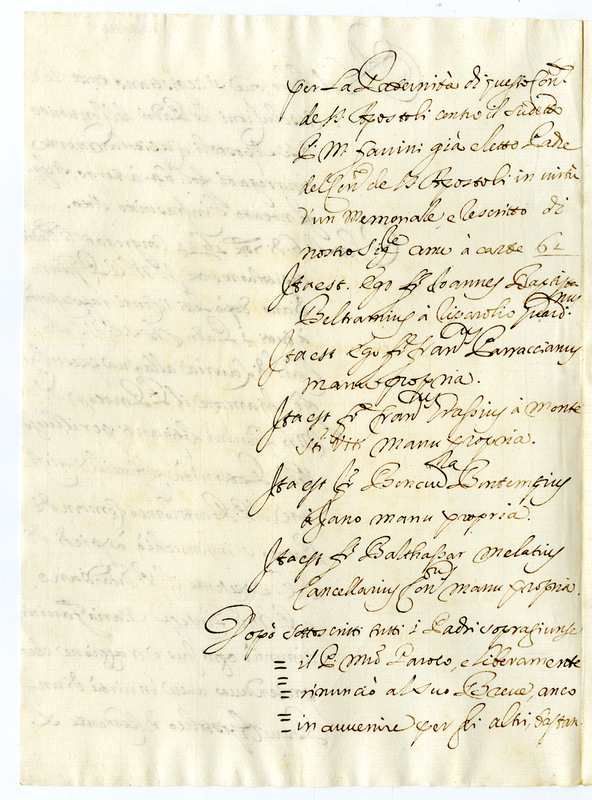 per La Paternità di questo Con.to
de SS Apostoli contro il sudetto
P. M. Favini già eletto Padre
del Con.to de SS Apostoli in virtù
d'un Memoriale, e lescritto di
nostro Sig.re anno à carte 62
Ita est. Ego fr Joannes Baptista
Beltramius à Guard.nus
Ita est Ego fr. Fran.cus Parraccianus
manu propria.
Ita est fr. Fran.cus Grassius à Monte
S.ti Viti manu propria.
Ita est fr. Bontempius
à Fano manu propria.
Ita est fr. Balthassar Melatius
Cancellarius Con.tus manu propria.
Dopò sottoscritti tutti i Padri sopragiunse
il P. M.ro Paroco, e liberamente
rinunciò al suo Breve, anco
in avvenire per gli altri,